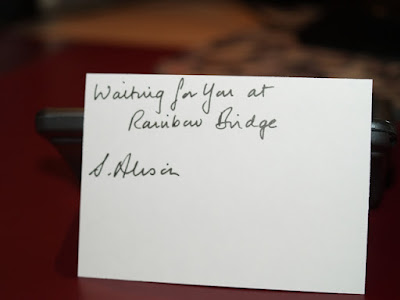 Waiting for You at
Rainbow Bridge
S. Alison